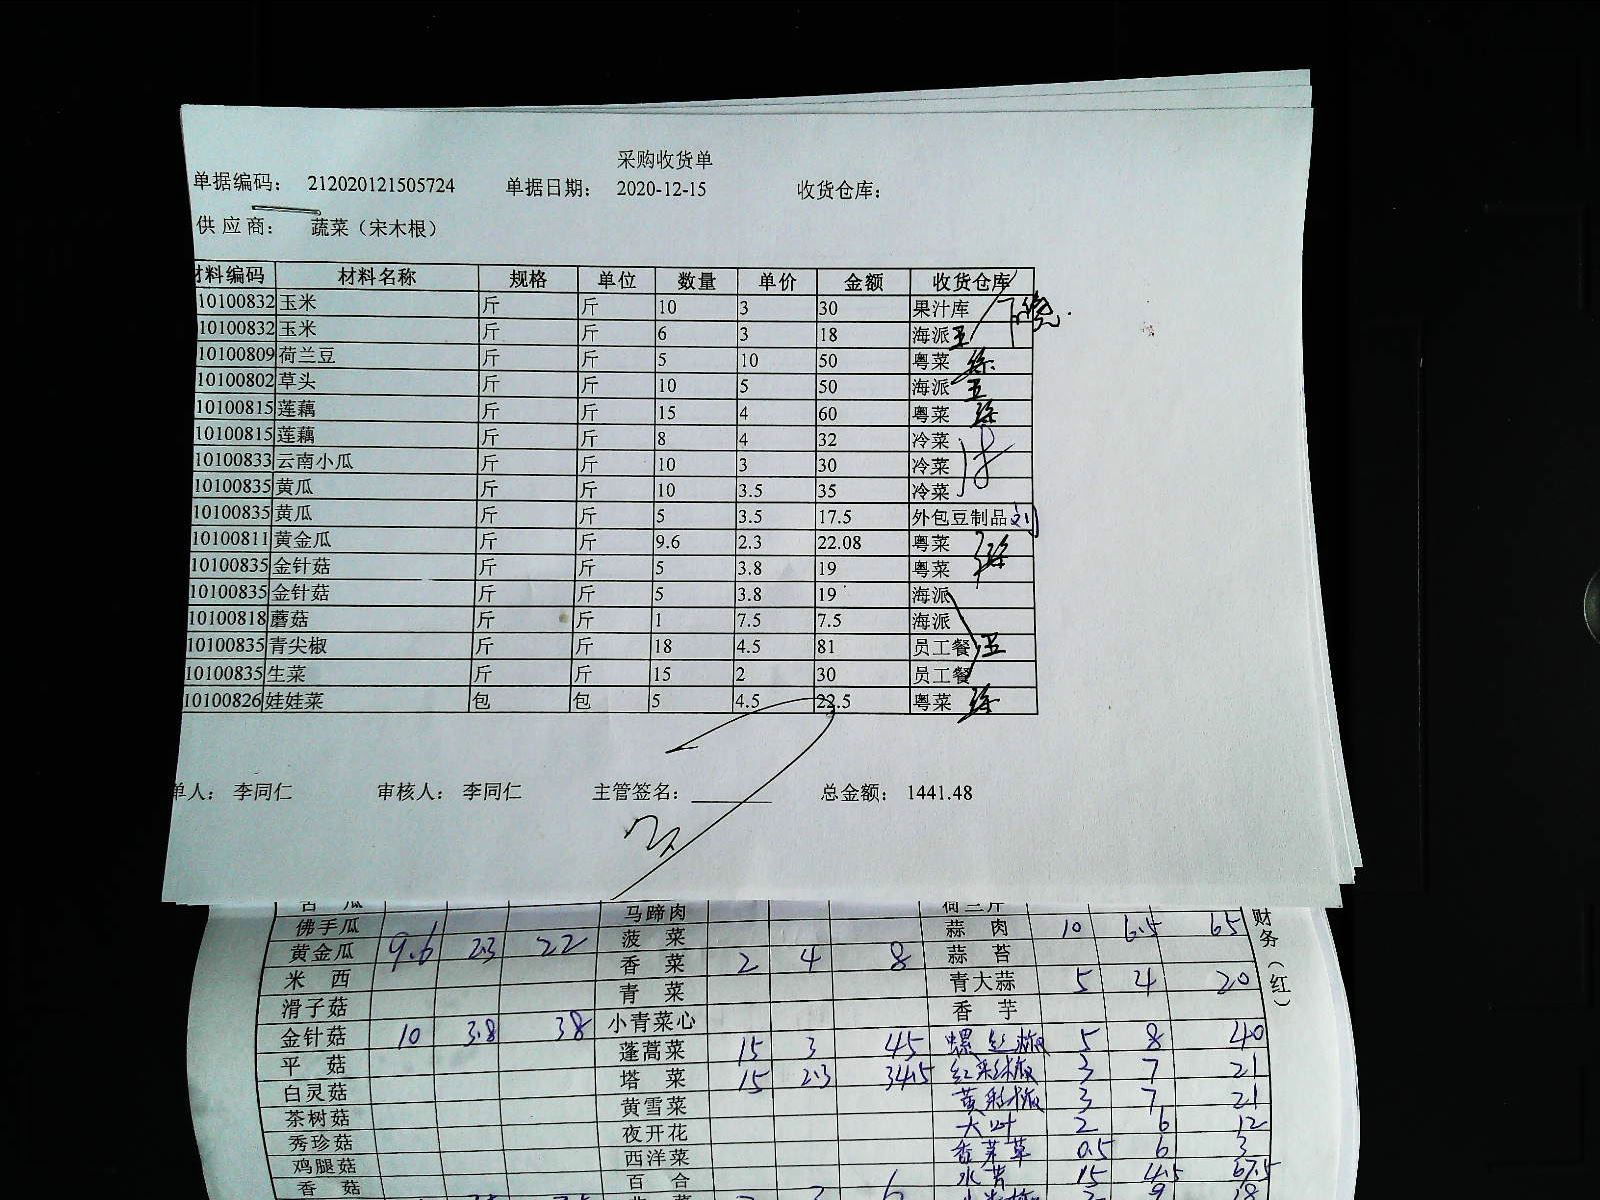 采购收货单
单据编码： 212020121505724 单据日期： 2020-12-15 收货仓库：
供 应 商： 蔬菜（宋木根）
材料编码 材料名称 规格 单位 数量 单价 金额 收货仓库
10100832 玉米 斤 斤 10 3 30 果汁库
10100832 玉米 斤 斤 6 3 18 海派 王
10100809 荷兰豆 斤 斤 5 10 50 粤菜
10100802 草头 斤 斤 10 5 50 海派 王
10100815 莲藕 斤 斤 15 4 60 粤菜
10100815 莲藕 斤 斤 8 4 32 冷菜
10100833 云南小瓜 斤 斤 10 3 30 冷菜
10100835 黄瓜 斤 斤 10 3.5 35 冷菜
10100835 黄瓜 斤 斤 5 3.5 17.5 外包豆制品 刘
10100811 黄金瓜 斤 斤 9.6 2.3 22.08 粤菜
10100835 金针菇 斤 斤 5 3.8 19 粤菜
10100835 金针菇 斤 斤 5 3.8 19 海派
10100818 蘑菇 斤 斤 1 7.5 7.5 海派
10100835 青尖椒 斤 斤 18 4.5 81 员工餐 王
10100835 生菜 斤 斤 15 2 30 员工餐
10100826 娃娃菜 包 包 5 4.5 22.5 粤菜
单人： 李同仁 审核人： 李同仁 主管签名： 总金额： 1441.48
马蹄肉
佛手瓜 菠 菜 蒜 肉 10 6.5 65
黄金瓜 9.6 2.3 22 香 菜 2 4 8 蒜 苔
米 西 青 菜 青大蒜 5 4 20
滑子菇 小青菜心 香 芋
金针菇 10 3.8 38 蓬蒿菜 15 3 45 螺丝椒 5 8 40
平 菇 塔 菜 15 2.3 34.5 红彩椒 3 7 21
白灵菇 黄雪菜 黄彩椒 3 7 21
茶树菇 夜开花 大叶 2 6 12
秀珍菇 西洋菜 香茅草 0.5 6 3
鸡腿菇 百 合 水芹 15 4.5 67.5
香 菇
财务（红）